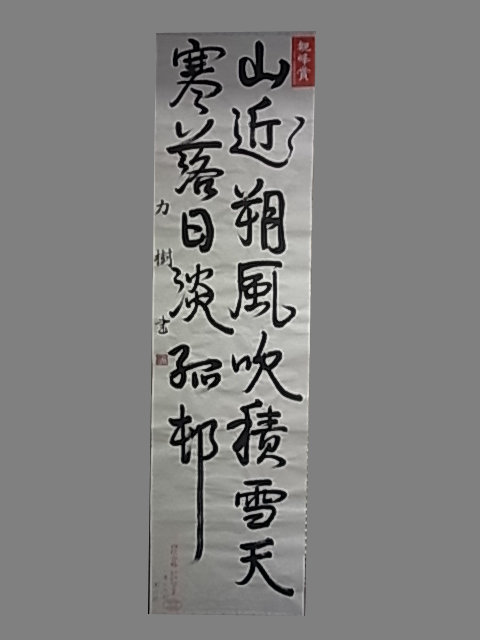 山近朔風吹積雪天
寒落日淡孤邨
力樹書
観峰賞